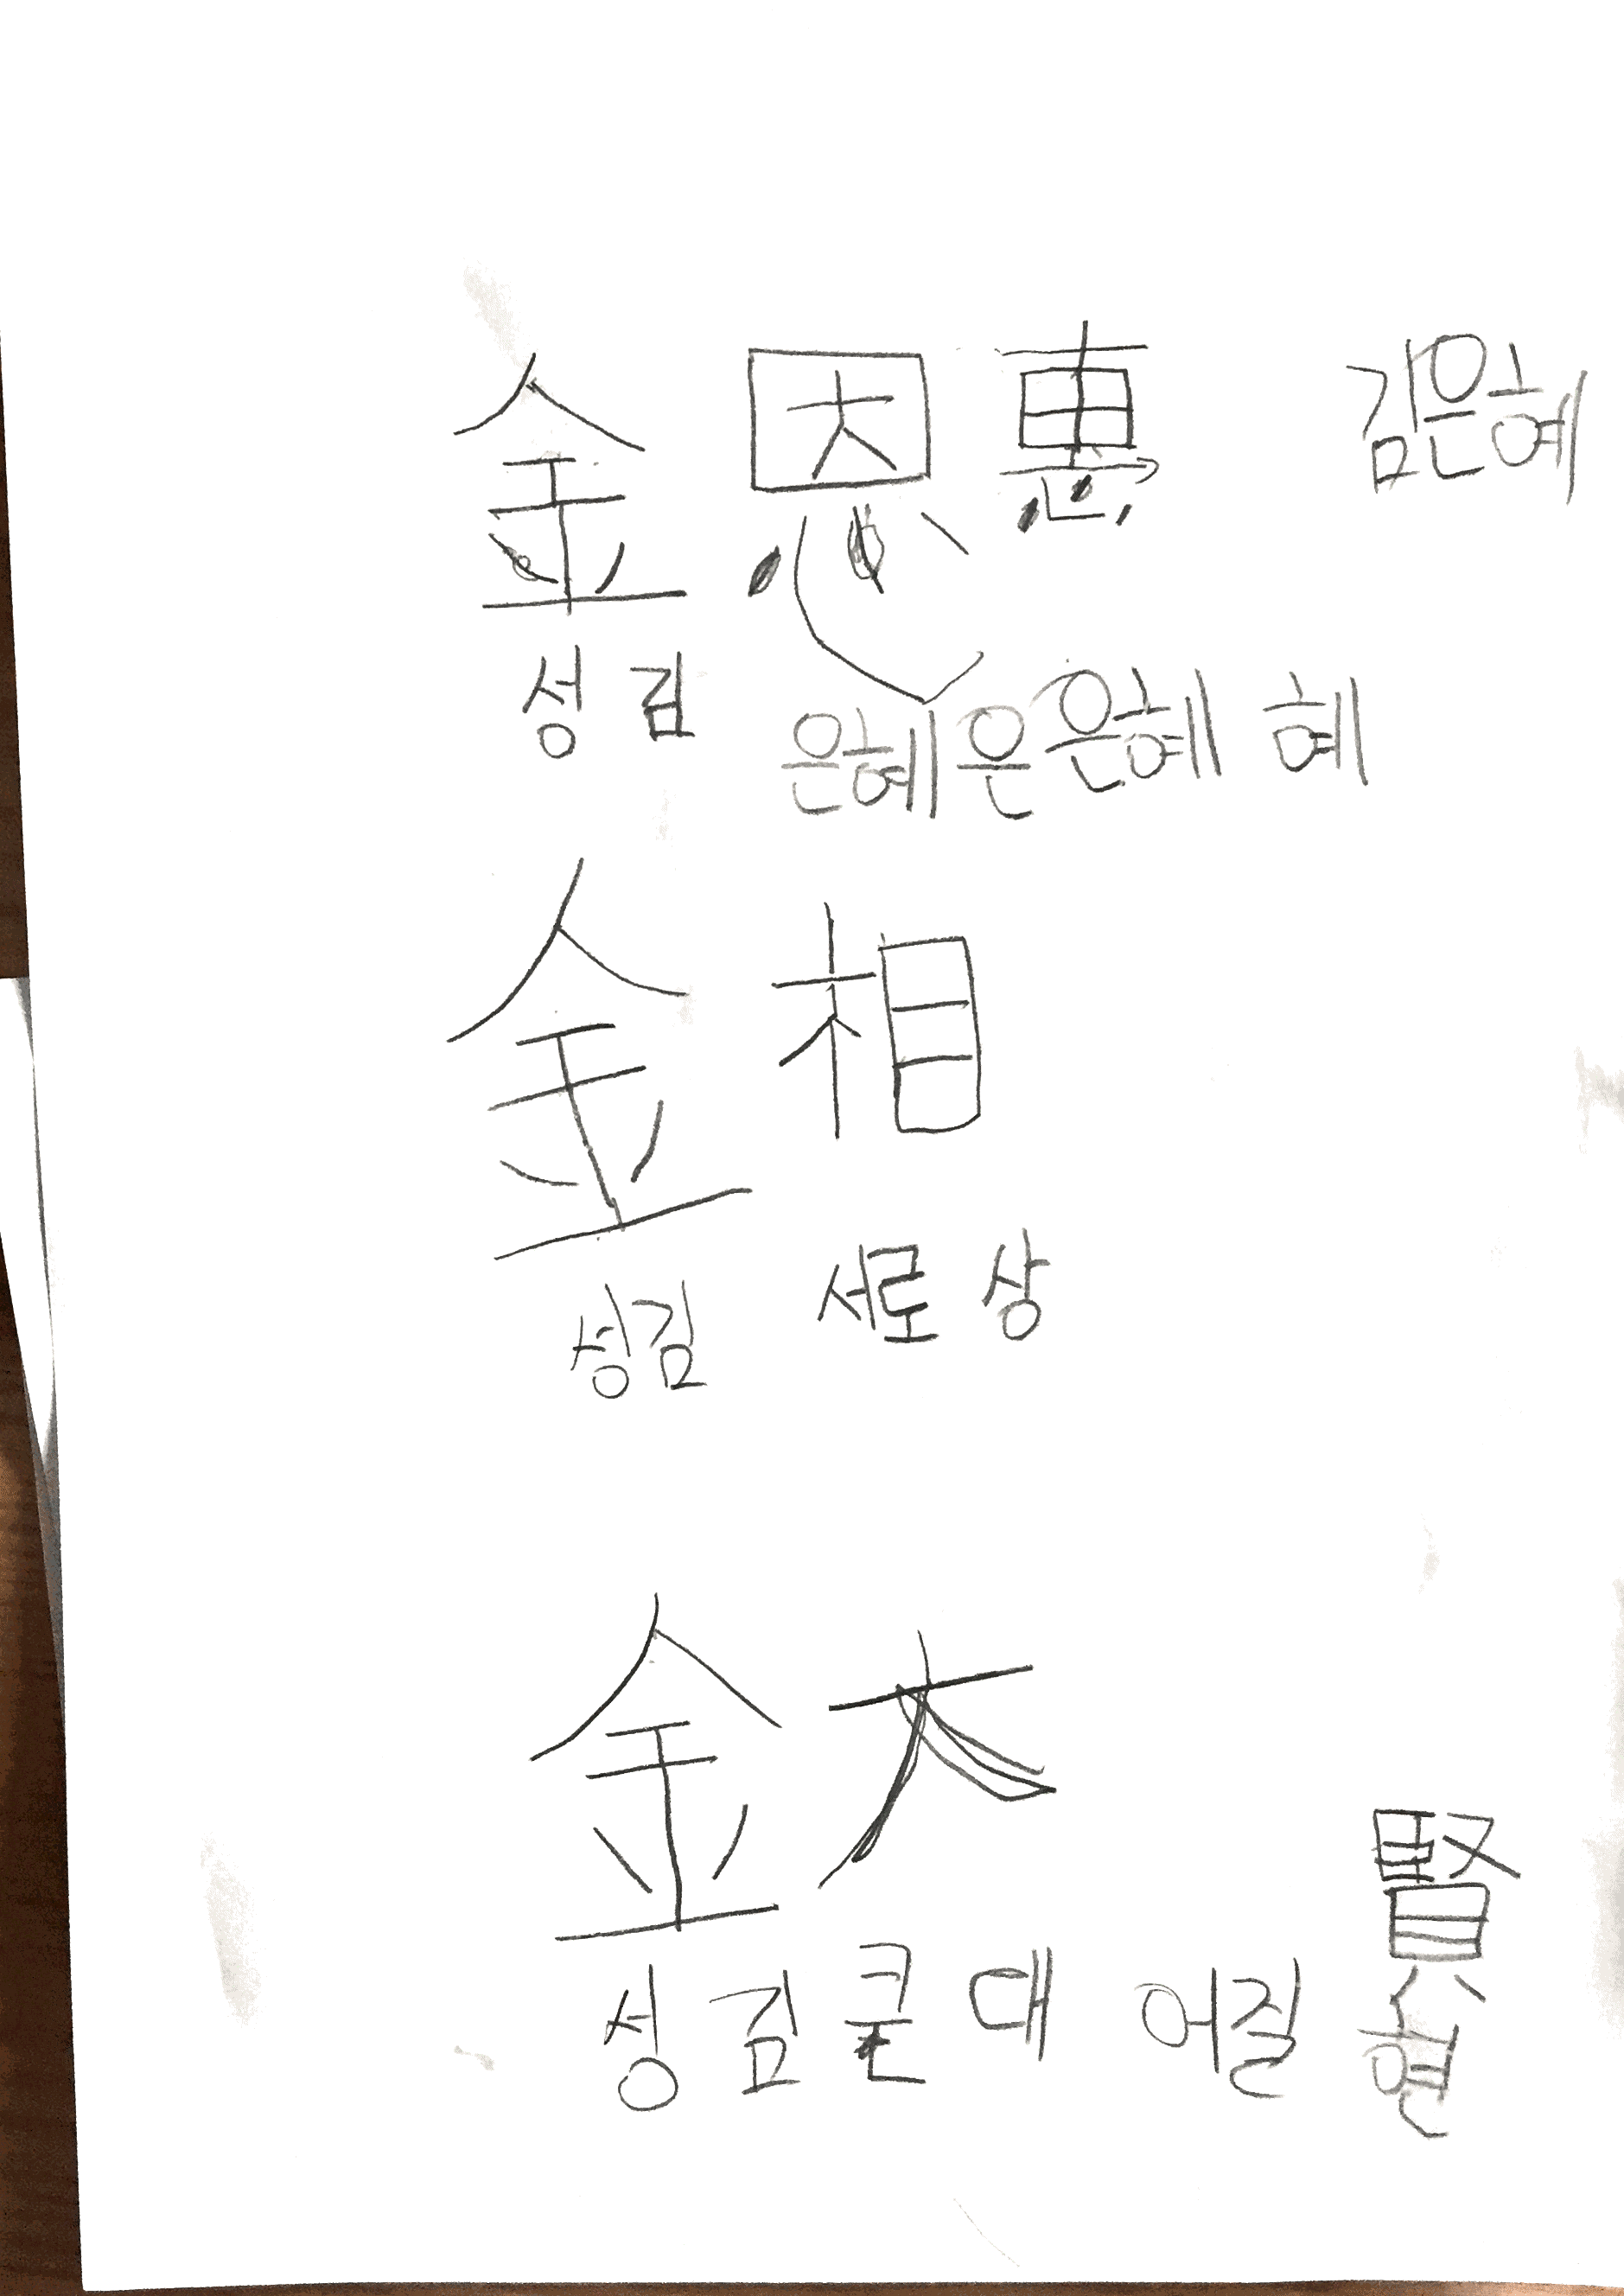 金 恩 惠 김은혜
성 김 은혜 은 은혜 혜
金 相
성김 서로 상
金 大 賢
성 김 큰 대 어질 현